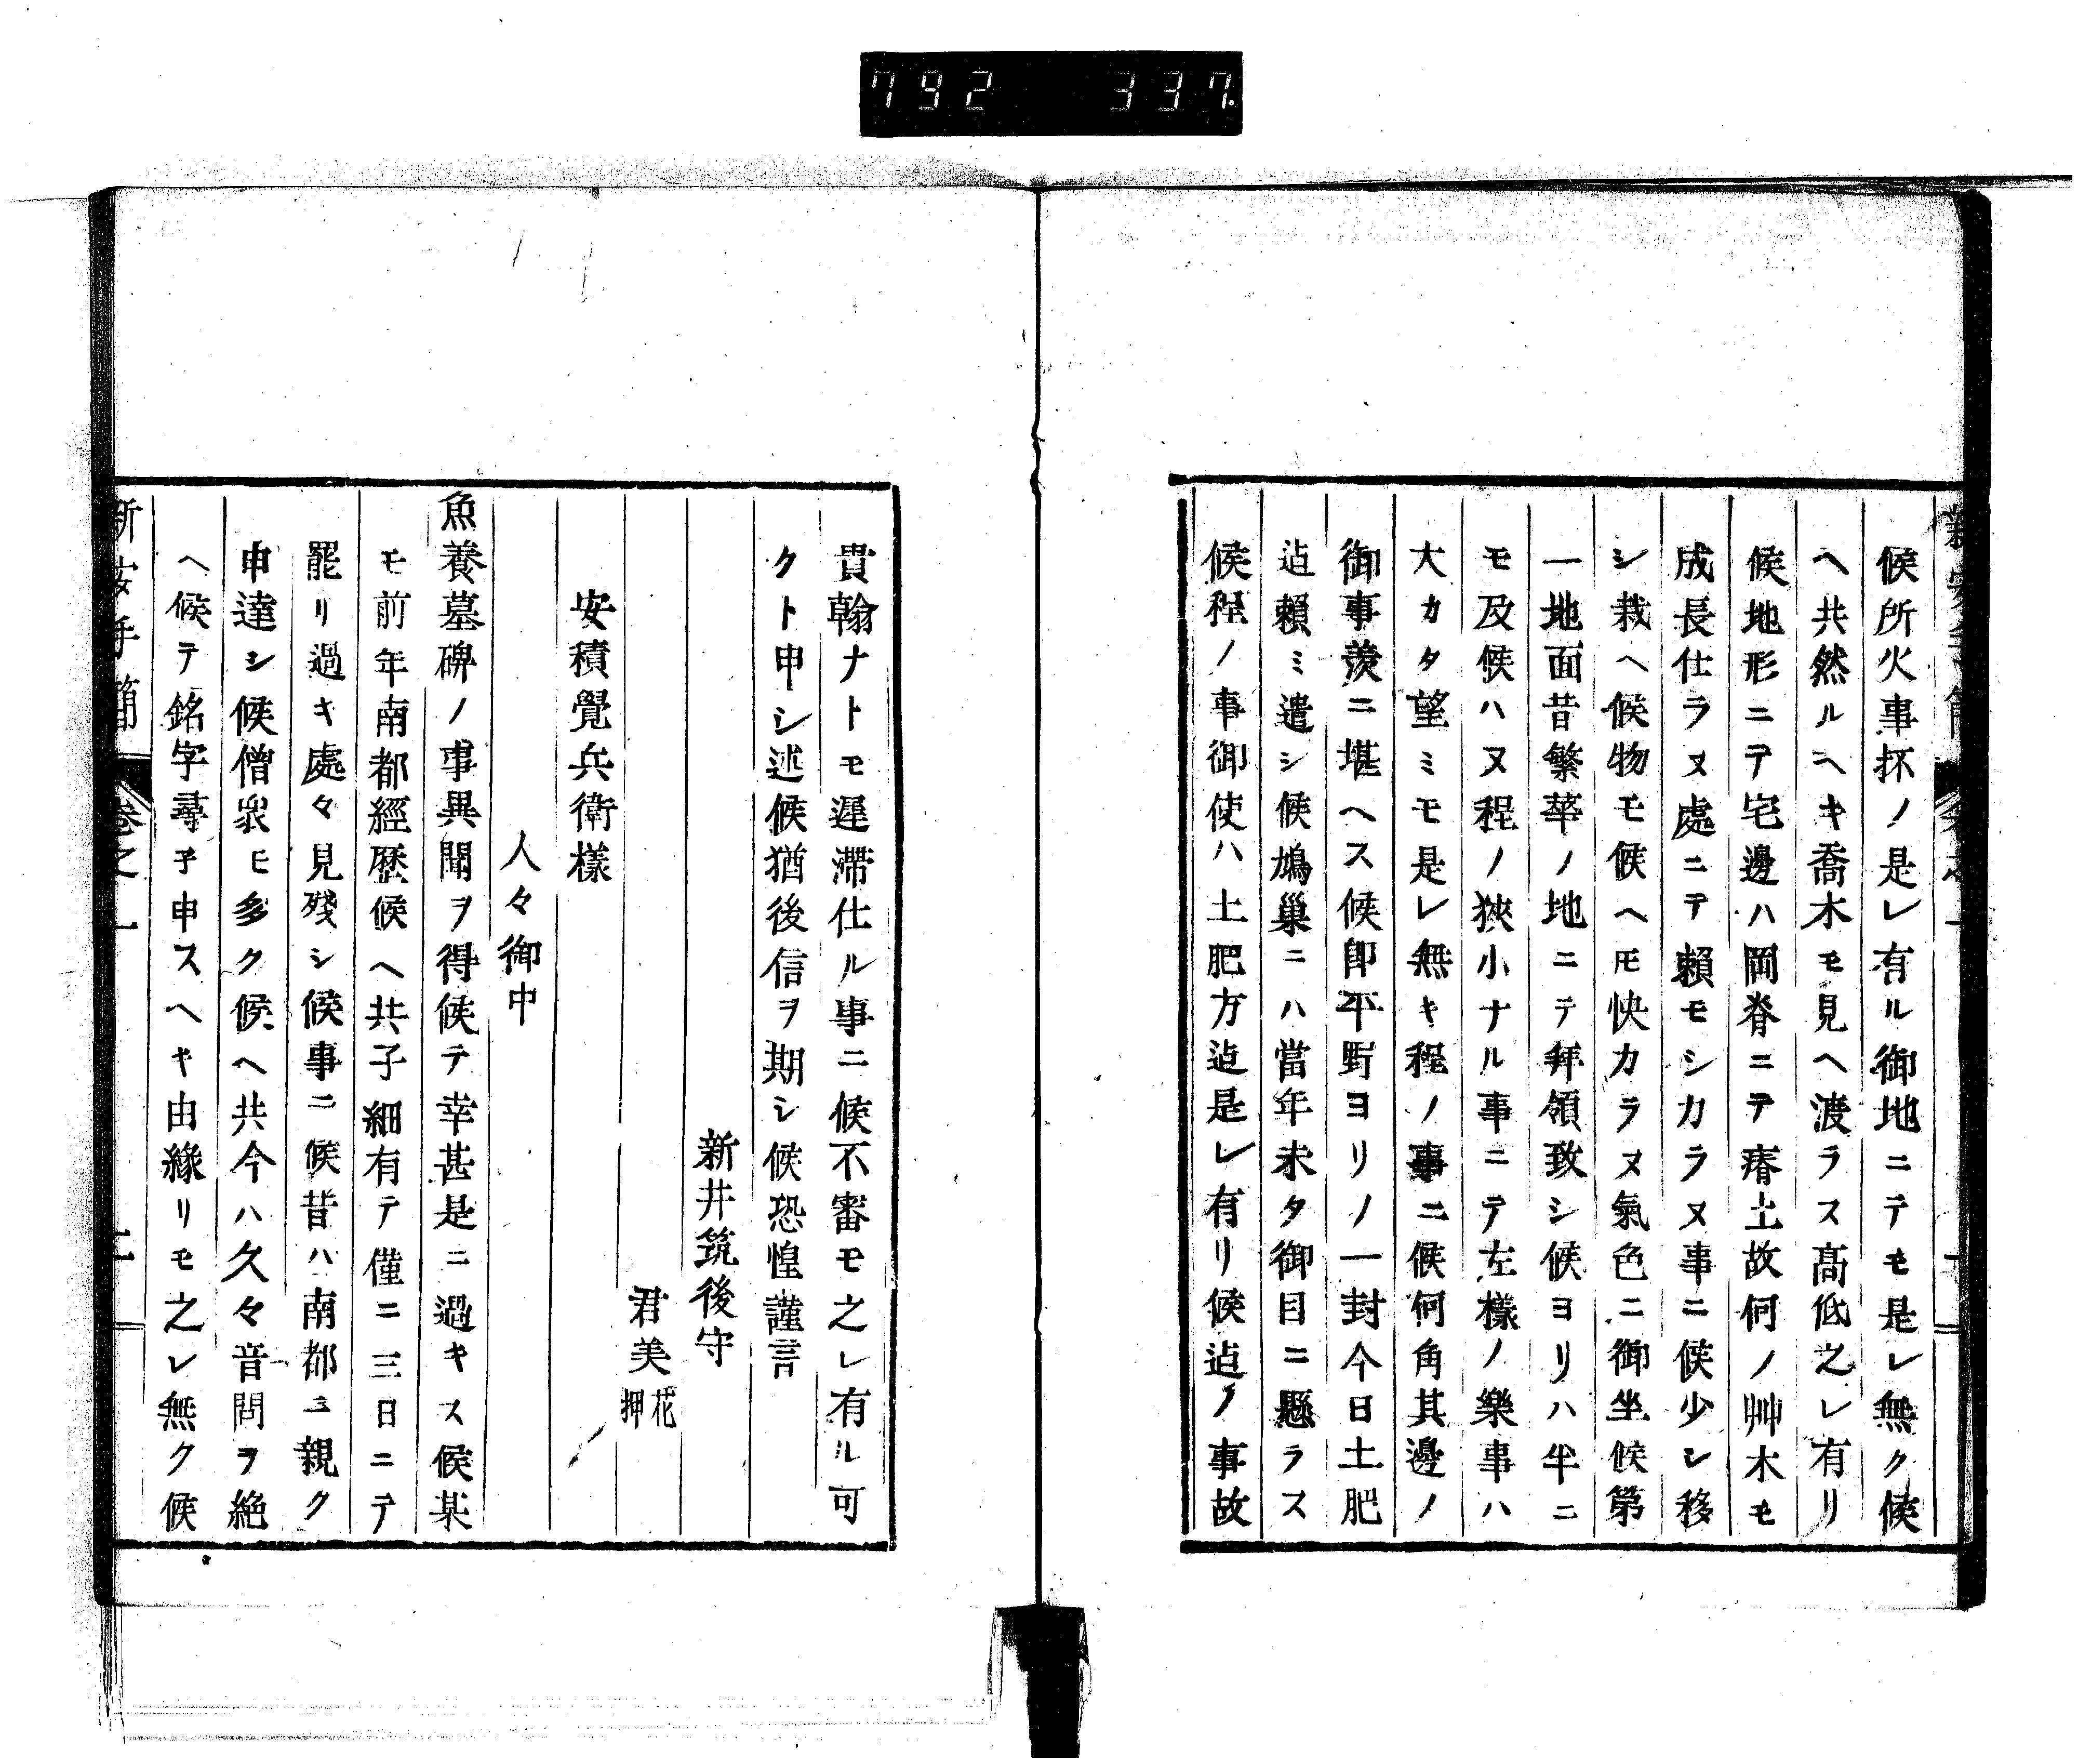 792 337
候所火事抔ノ是レ有ル御地ニテモ是レ無ク候
ヘ共然ルヘキ喬木モ見ヘ渡ラス高低之レ有リ
候地形ニテ宅邊ハ岡脊ニテ瘠土故何ノ艸木モ
成長仕ラヌ處ニテ賴モシカラヌ事ニ候少シ移
シ栽ヘ候物モ候ヘ𪜈快カラヌ氣色ニ御坐候第
一地面昔繁華ノ地ニテ拜領致シ候ヨリハ半ニ
モ及候ハヌ程ノ狹小ナル事ニテ左樣ノ樂事ハ
大カタ望ミモ是レ無キ程ノ事ニ候何角其邊ノ
御事羨ニ堪ヘス候卽平野ヨリノ一封今日土肥
迠賴ミ遣シ候鳩巢ニハ當年未タ御目ニ懸ラス
候程ノ事御使ハ土肥方迠是レ有リ候迠ノ事故
貴翰ナトモ遲滯仕ル事ニ候不審モ之レ有ル可
クト申シ述候猶後信ヲ期シ候恐惶謹言
新井筑後守
君美花押
安積覺兵衛樣
人々御中
魚養墓碑ノ事異聞ヲ得候テ幸甚是ニ過キス候某
モ前年南都經歴候ヘ共子細有テ僅ニ三日ニテ
罷リ過キ處々見殘シ候事ニ候昔ハ南都ニ親ク
申達シ候僧衆ヒ多ク候ヘ共今ハ久々音問ヲ絶
ヘ候テ銘字尋子申スヘキ由緣リモ之レ無ク候
新安手簡 卷之一